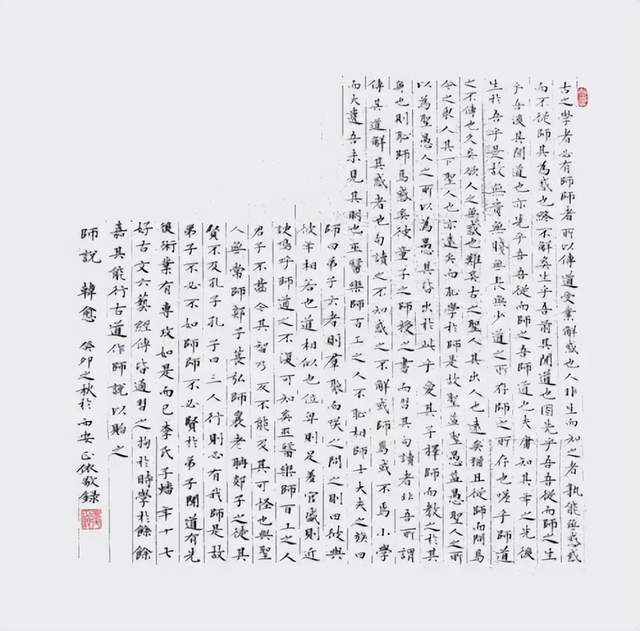 古之學者必有師師者所以傳道受業解惑也人非生而知之者孰能無惑惑
而不從師其為惑也終不解矣生乎吾前其聞道也固先乎吾吾從而師之生
乎吾後其聞道也亦先乎吾吾從而師之吾師道也夫庸知其年之先後
生於吾乎是故無貴無賤無長無少道之所存師之所存也嗟乎師道
之不傳也久矣欲人之無惑也難矣古之聖人其出人也遠矣猶且從師而問焉
今之眾人其下聖人也亦遠矣而恥學於師是故聖益聖愚益愚聖人之所
以為聖愚人之所以為愚其皆出於此乎愛其子擇師而教之於其
身也則恥師焉惑矣彼童子之師授之書而習其句讀者非吾所謂
傳其道解其惑者也句讀之不知惑之不解或師焉或不焉小學
而大遺吾未見其明也巫醫樂師百工之人不恥相師士大夫之族曰
師曰弟子云者則群聚而笑之問之則曰彼與
彼年相若也道相似也位卑則足羞官盛則近
諛嗚呼師道之不復可知矣巫醫樂師百工之人
君子不齒今其智乃反不能及其可怪也與聖
人無常師郯子萇弘師襄老聃郯子之徒其
賢不及孔子孔子曰三人行則必有我師是故
弟子不必不如師師不必賢於弟子聞道有先
後術業有專攻如是而已李氏子蟠年十七
好古文六藝經傳皆通習之拘於時學於餘餘
嘉其能行古道作師說以貽之
師說 韓愈 癸卯之秋於西安 依敬錄